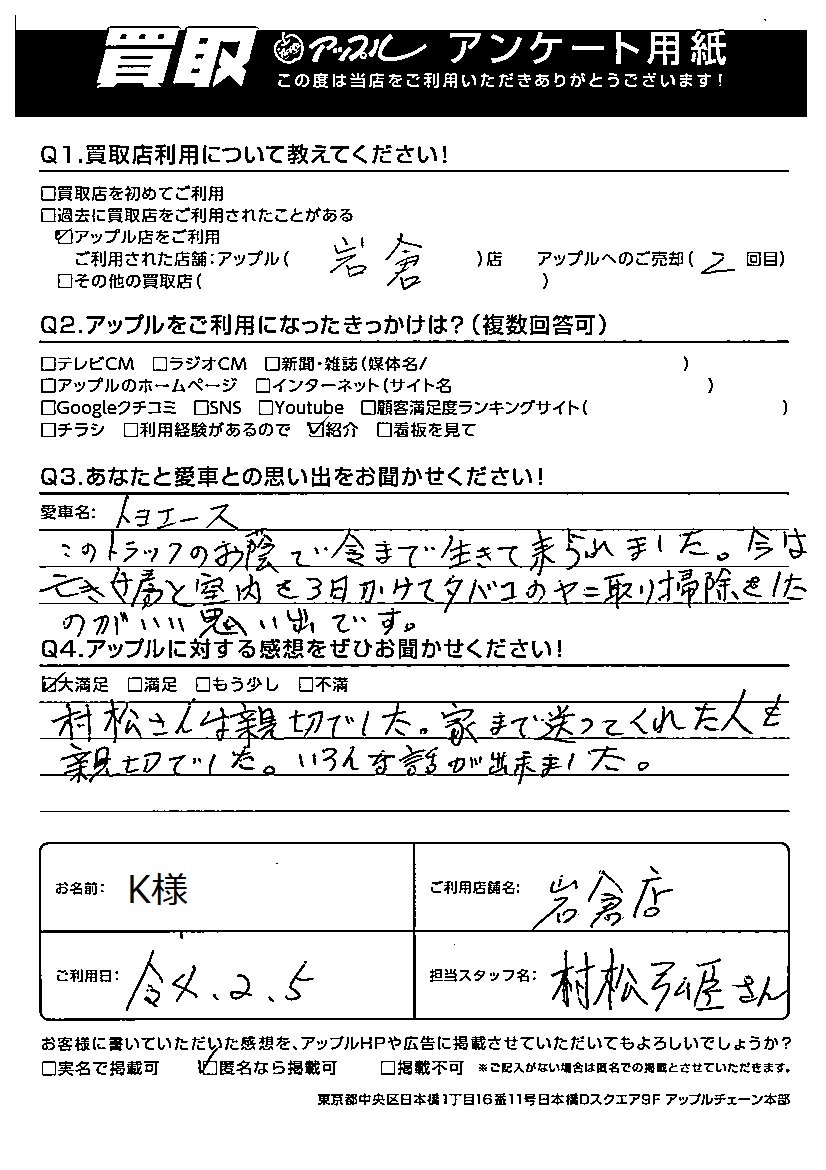 買取 アップル アンケート用紙
この度は当店をご利用いただきありがとうございます!
Q1.買取店利用について教えてください!
□買取店を初めてご利用
□過去に買取店をご利用されたことがある
☑アップル店をご利用
ご利用された店舗:アップル( 岩倉 )店 アップルへのご売却( 2 回目)
□その他の買取店( )
Q2.アップルをご利用になったきっかけは?(複数回答可)
□テレビCM □ラジオCM □新聞・雑誌(媒体名/ )
□アップルのホームページ □インターネット(サイト名 )
□Googleクチコミ □SNS □Youtube □顧客満足度ランキングサイト( )
□チラシ □利用経験があるので ☑紹介 □看板を見て
Q3.あなたと愛車との思い出をお聞かせください!
愛車名: トヨエース
このトラックのお陰で今まで生きて来られました。今は
亡き女房と室内を3日かけてタバコのヤニ取り掃除をした
のがいい思い出です。
Q4.アップルに対する感想をぜひお聞かせください!
☑大満足 □満足 □もう少し □不満
村松さんは親切でした。家まで送ってくれた人も
親切でした。いろんな話が出来ました。
お名前: K様 ご利用店舗名: 岩倉店
ご利用日: 令4.2.5 担当スタッフ名: 村松弘臣さん
お客様に書いていただいた感想を、アップルHPや広告に掲載させていただいてもよろしいでしょうか?
□実名で掲載可 ☑匿名なら掲載可 □掲載不可 ※ご記入がない場合は匿名での掲載とさせていただきます。
東京都中央区日本橋1丁目16番11号日本橋Dスクエア9F アップルチェーン本部